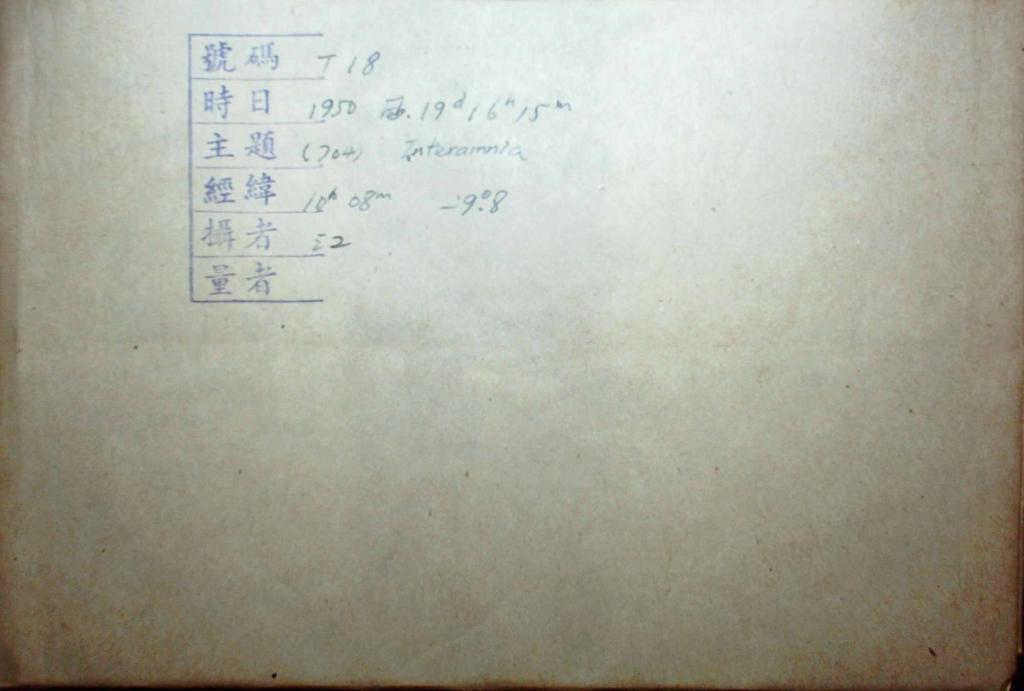 號碼 T 18
時日 1950 19ᵈ 16ʰ 15ᵐ
主題 (704) Interamnia
經緯 10ʰ 08ᵐ -9°.8
攝者
量者